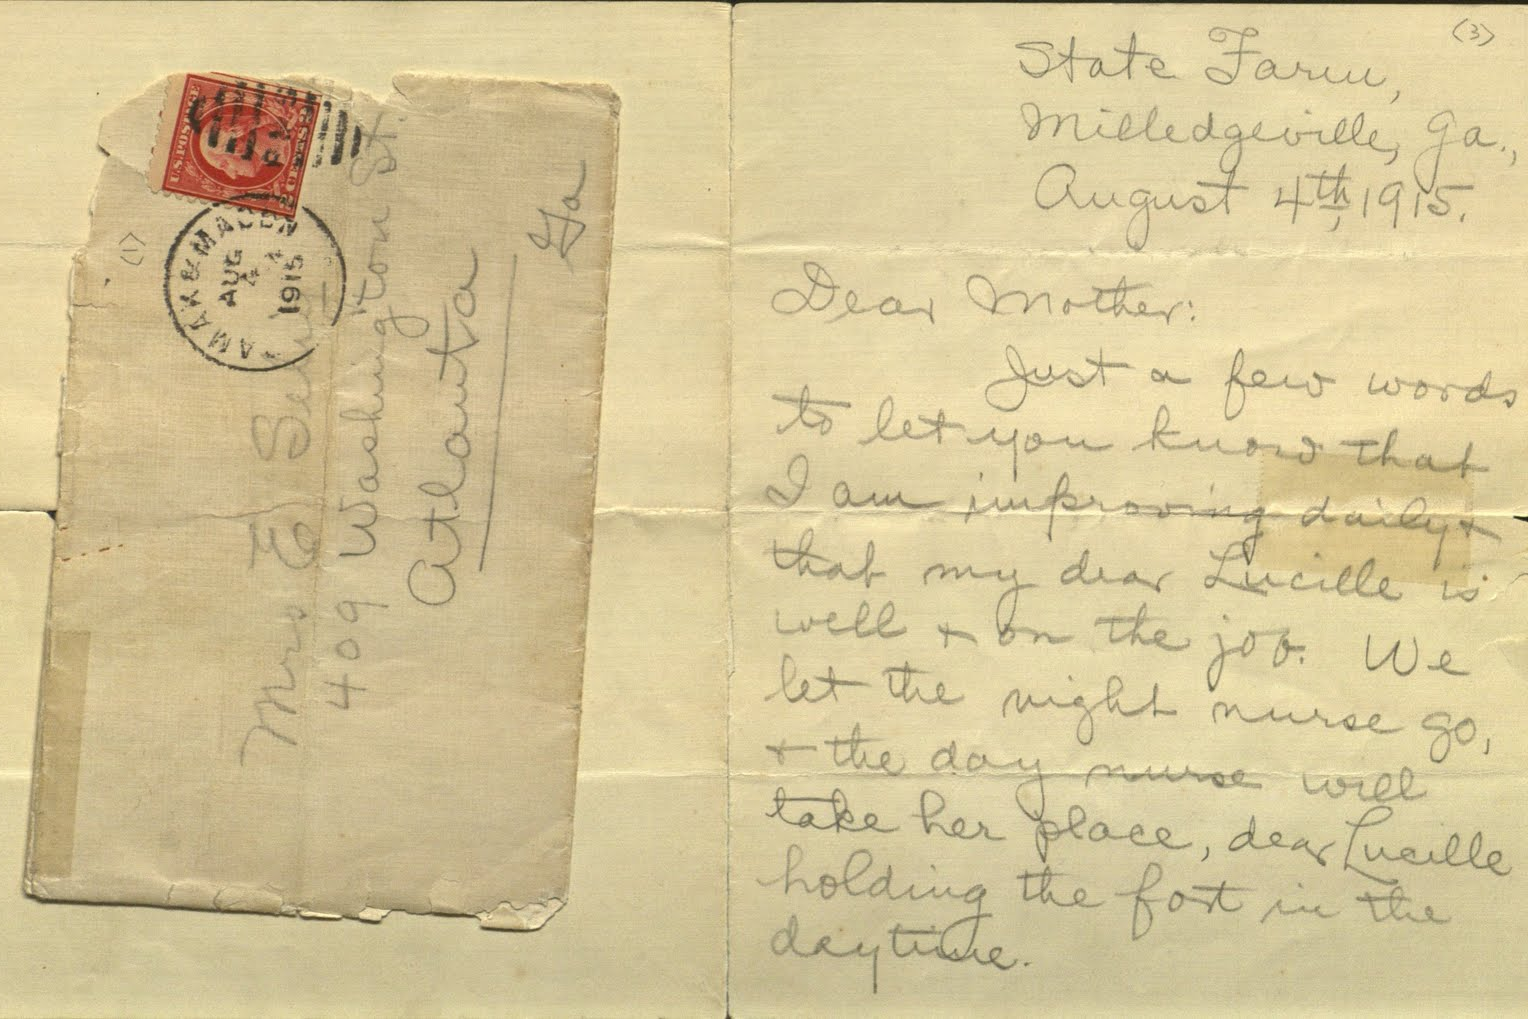 (1)
U.S. POSTAGE
MAC & MACON
AUG
4
1915
Mrs E
409 Washington St.
Atlanta
Ga
(3)
State Farm,
Milledgeville, Ga.,
August 4th, 1915.
Dear Mother:
Just a few words
to let you know that
I am improving daily +
that my dear Lucille is
well + on the job. We
let the night nurse go,
+ the day nurse will
take her place, dear Lucille
holding the fort in the
daytime.